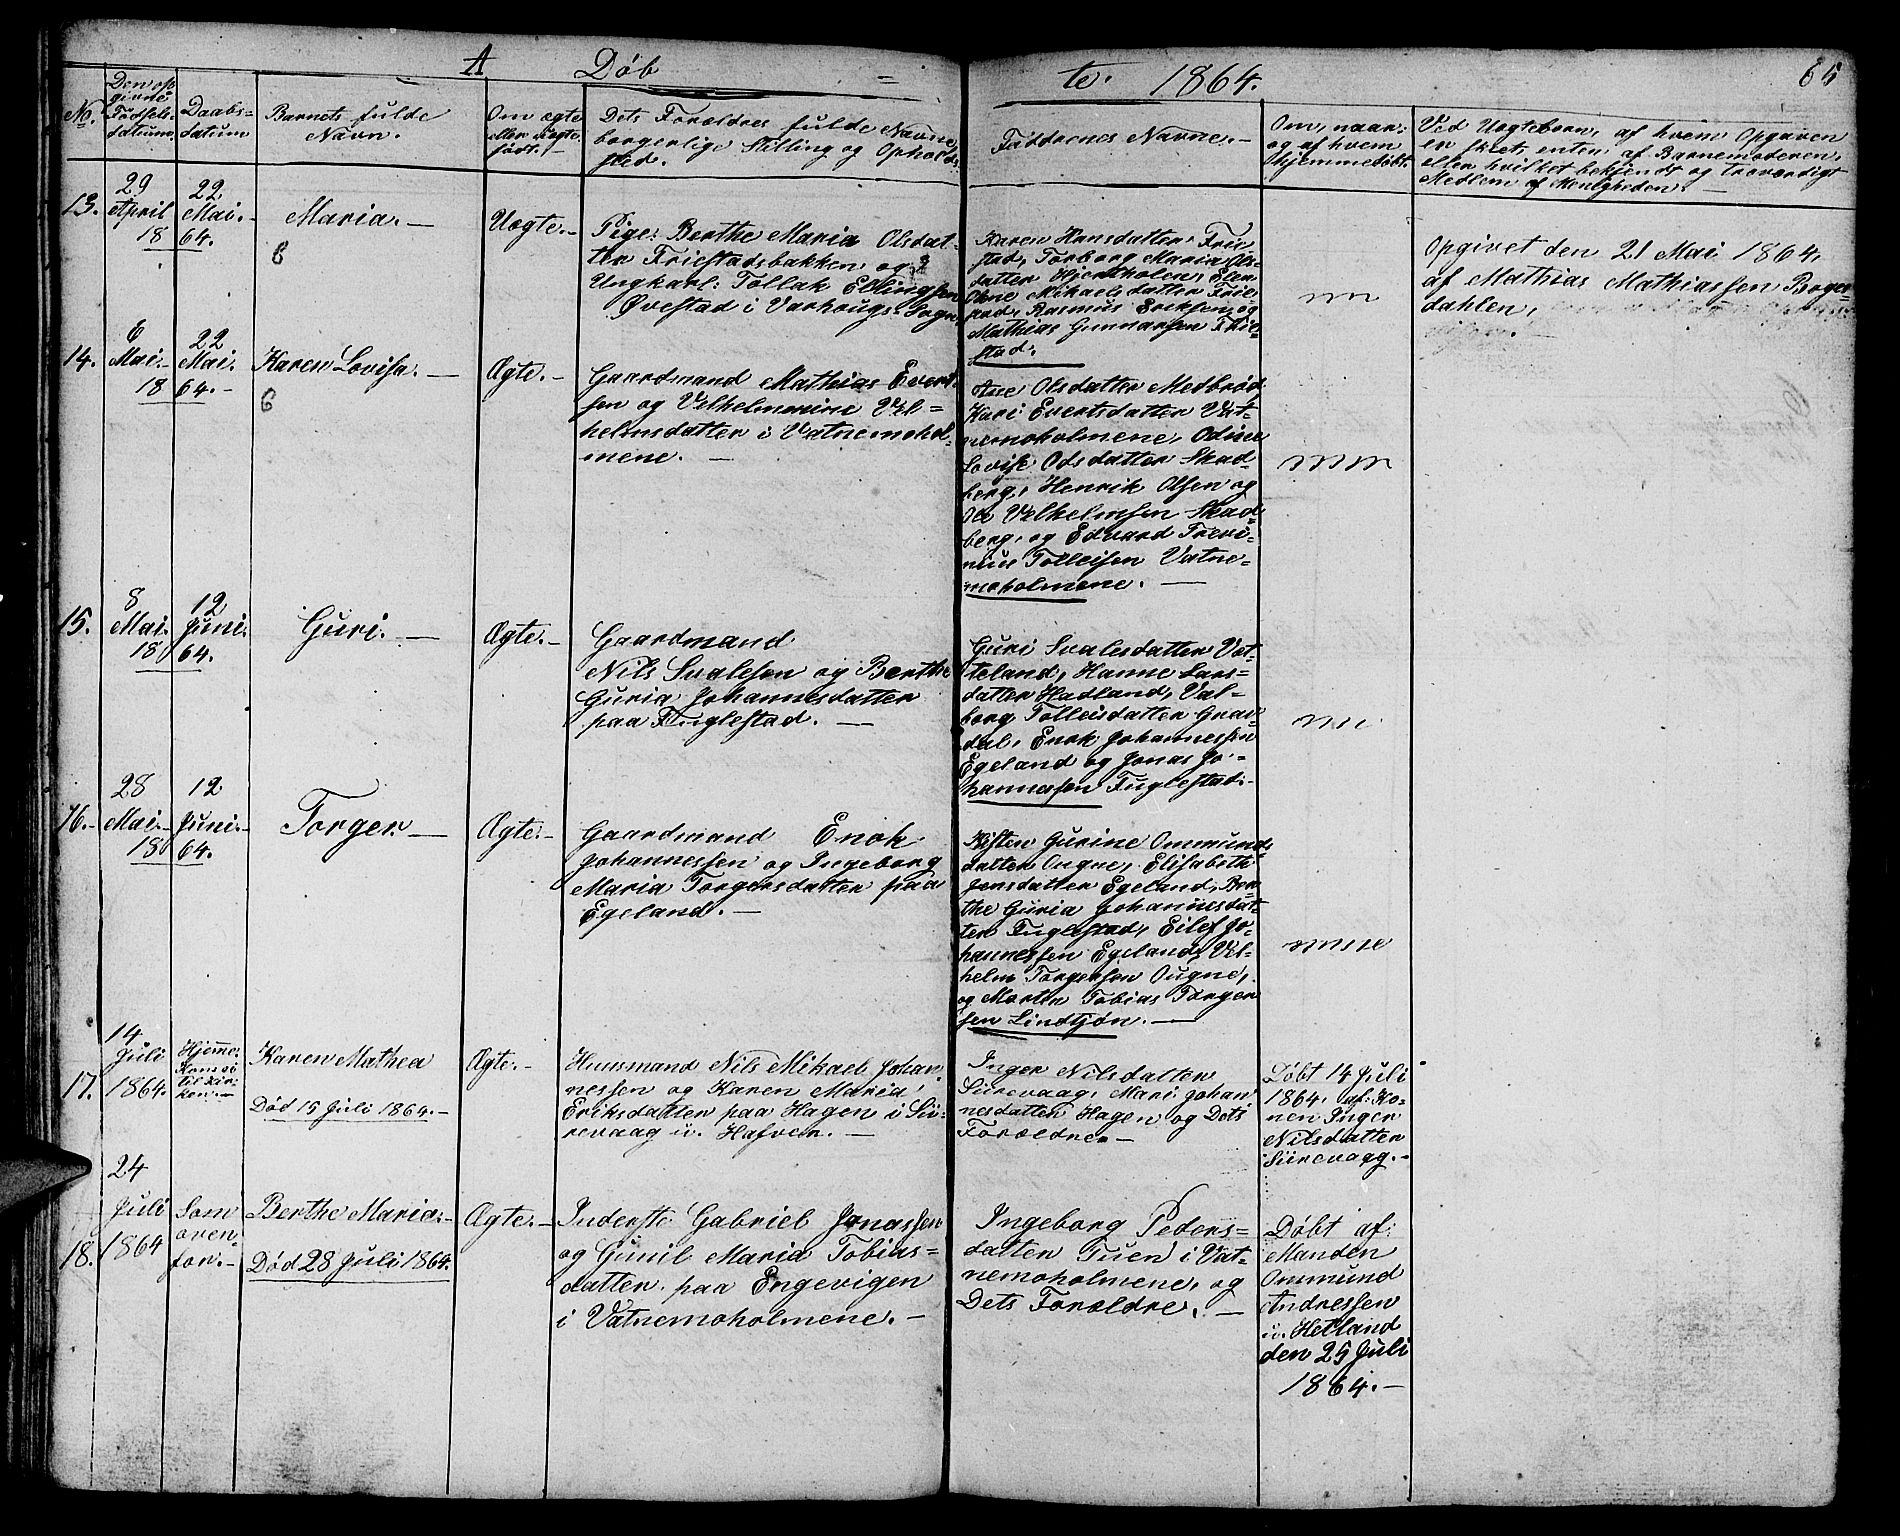 A Døb = te. 1864. 65
No.
Den op
givne
Fødsels-
datum.
Daabs-
datum
Barnets fulde
Navn.
Om ægte
eller uægte
født.
Dets Forældres fulde Navne,
borgerlige Stilling og Opholds
sted.
Faddrenes Navne.
Om, naar
og af hvem
hjemmedøbt.
Ved Uægtebørn, af hvem Opgaven
er skeet, enten af Barnemoderen,
eller hvilket bekjendt og troværdigt
Medlem af Menigheden.
13.
29
April
18
22
Mai.
64.
Maria.
Uægte.
Pige: Berthe Maria Olsdat-
ter Friestadsbakken og
Ungkarl: Tollak Ellingsen
Øvestad i Varhougs Sogn
Karen Hansdatter Frie
stad, Torborg Maria Ols-
datter Hjentholen, Elen
Olene Mikaelsdatter Frie
stad, Rasmus Eriksen og
Mathias Gunnarsen Frie-
stad.
Opgivet den 21 Mai 1864,
af Mathias Mathiassen Boger-
dahlen,
14.
6
Mai.
18
22
Mai.
64.
Karen Lovisa.
Ægte.
Gaardmand Mathias Evert
sen og Velhelmmine Vel-
helmsdatter i Vatnemohol-
mene.
Ane Olsdatter Medbrød
Kari Evertsdatter Vat-
nemoholmene, Odine
Lovise Odsdatter Skad-
berg, Henrik Olsen og
Ole Velhelmsen Skad-
berg, og Edvard Treri-
nius Tolleisen Vatne-
moholmene.
15.
8
Mai.
18
12
Juni.
64.
Guri.
Ægte.
Gaardmand
Nils Svalesen og Berthe
Guria Johannesdatter
paa Fuglestad.
Guri Svalesdatter Vat-
teland, Hanne Lars-
datter Hadland, Val-
borg Tolleisdatter Grau-
dal, Enok Johannessen
Egeland og Jonas Jo-
hannessen Fuglestad.
16.
28
Mai.
18
12
Juni.
64.
Torger
Ægte.
Gaardmand Enok
Johannessen og Ingeborg
Maria Torgersdatter paa
Egeland.
Kisten Gurine Ommunds
datter Ougne, Elisabeth
Jensdatter Egeland, Ber
the Guria Johannesdat-
ter Fuglestad, Eilef Jo-
hannessen Egeland, Vel-
helm Torgersen Ougne,
og Morten Tobias Torger
sen Lindtjøn.
17.
14
Juli
1864.
Hjemme.
Kom ei
til Kir-
ken.
Karen Mathea
Død 15 Juli 1864.
Ægte.
Huusmand Nils Mikael Johan-
nessen og Karen Maria
Eriksdatter paa Hagen i Sii-
revaag u. Hafven.
Inger Nilsdatter
Siirevaag, Mari Johan
nesdatter Hagen og Dets
Forældre.
Døbt 14 Juli
1864, af Ko-
nen Inger
Nilsdatter
Siirevagg.
18.
24
Juli
1864
Som
oven-
for.
Berthe Maria.
Død 28 Juli 1864.
Ægte.
Inderste Gabriel Jonassen
og Gunil Maria Tobias-
datter paa Engevigen
i Vatnemoholmene.
Ingeborg Peders-
datter Tuen i Vat-
nemoholmene, og
Dets Forældre.
Døbt af
Manden
Ommund
Andressen
u. Hetland
den 25 Juli
1864.